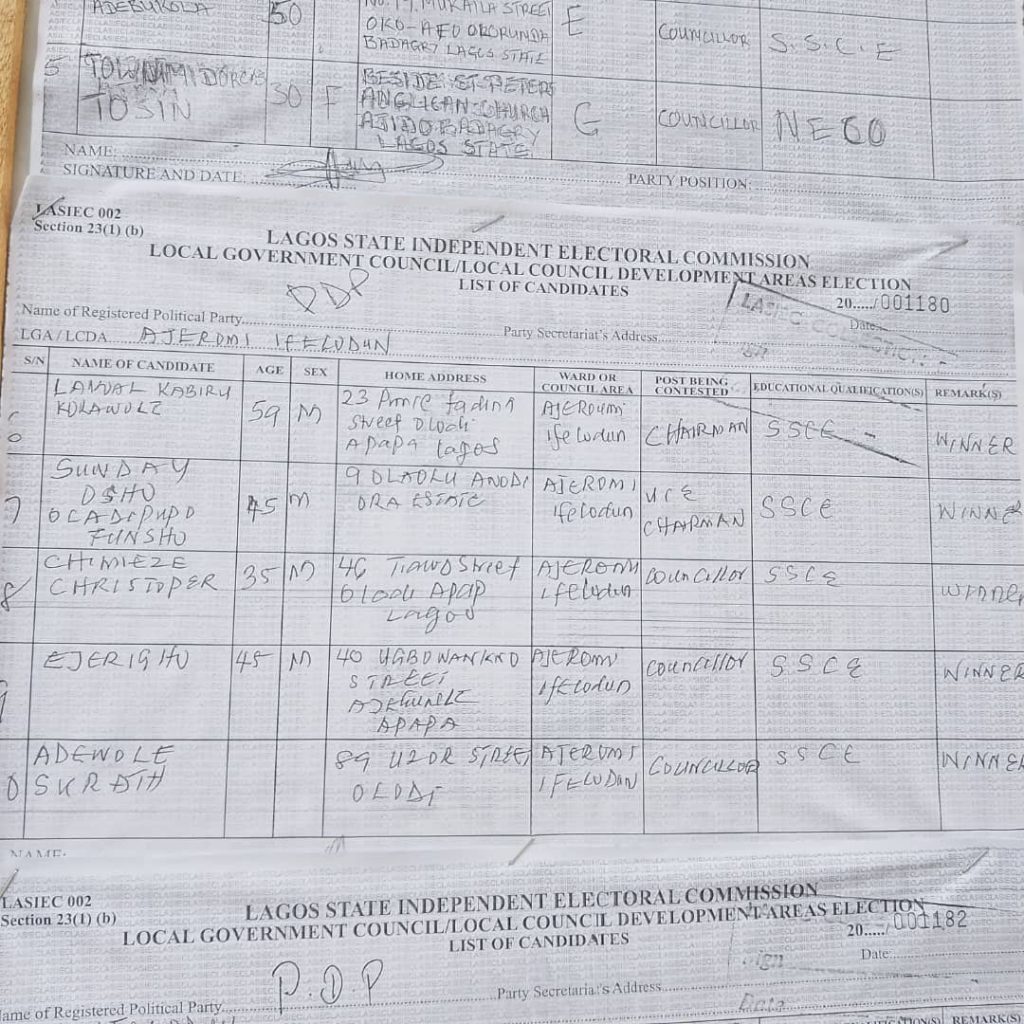 ADEBUKOLA 50 NO. 17. MUKAILA STREET E COUNCILLOR S.S.C.E
OKO-AFO
BADAGRY LAGOS STATE
5 30 F BESIDE ST PETERS G COUNCILLOR NECO
TOSIN ANGLICAN CHURCH
AJIDO BADAGRY
LAGOS STATE
NAME:
SIGNATURE AND DATE: PARTY POSITION:
LASIEC 002
Section 23(1) (b)
LAGOS STATE INDEPENDENT ELECTORAL COMMISSION
LOCAL GOVERNMENT COUNCIL/LOCAL COUNCIL DEVELOPMENT AREAS ELECTION
LIST OF CANDIDATES
20...../001180
PDP
Name of Registered Political Party Party Secretariat's Address Date:
LGA/LCDA AJEROMI IFELODUN
S/N NAME OF CANDIDATE AGE SEX HOME ADDRESS WARD OR COUNCIL AREA POST BEING CONTESTED EDUCATIONAL QUALIFICATION(S) REMARK(S)
LAWAL KABIRU 59 M 23 AJEROMI CHAIRMAN SSCE WINNER
KOLAWOLE Street Olodi Ifelodun
Apapa Lagos
7 SUNDAY 45 M 9 OLAOLU AJEROMI VICE SSCE WINNE
OSHO ESTATE Ifelodun CHAIRMAN
OLADIPUPO
FUNSHO
8 CHIMIEZE 35 M 46 Street AJEROMI Councillor SSCE WINNER
CHRISTOPER Olodi Apap Ifelodun
Lagos
EJERIGHO 45 M 40 AJEROMI Councillor SSCE WINNER
STREET Ifelodun
AJEGUNLE
APAPA
0 ADEWOLE 89 UZOR STREET AJEROMI COUNCILLOR SSCE WINNER
OLODI IFELODUN
NAME:
LASIEC 002
Section 23(1) (b)
LAGOS STATE INDEPENDENT ELECTORAL COMMISSION
LOCAL GOVERNMENT COUNCIL/LOCAL COUNCIL DEVELOPMENT AREAS ELECTION
LIST OF CANDIDATES
20...../001182
Sign
Date:
P.D.P
Name of Registered Political Party Party Secretariat's Address
Date
REMARK(S)